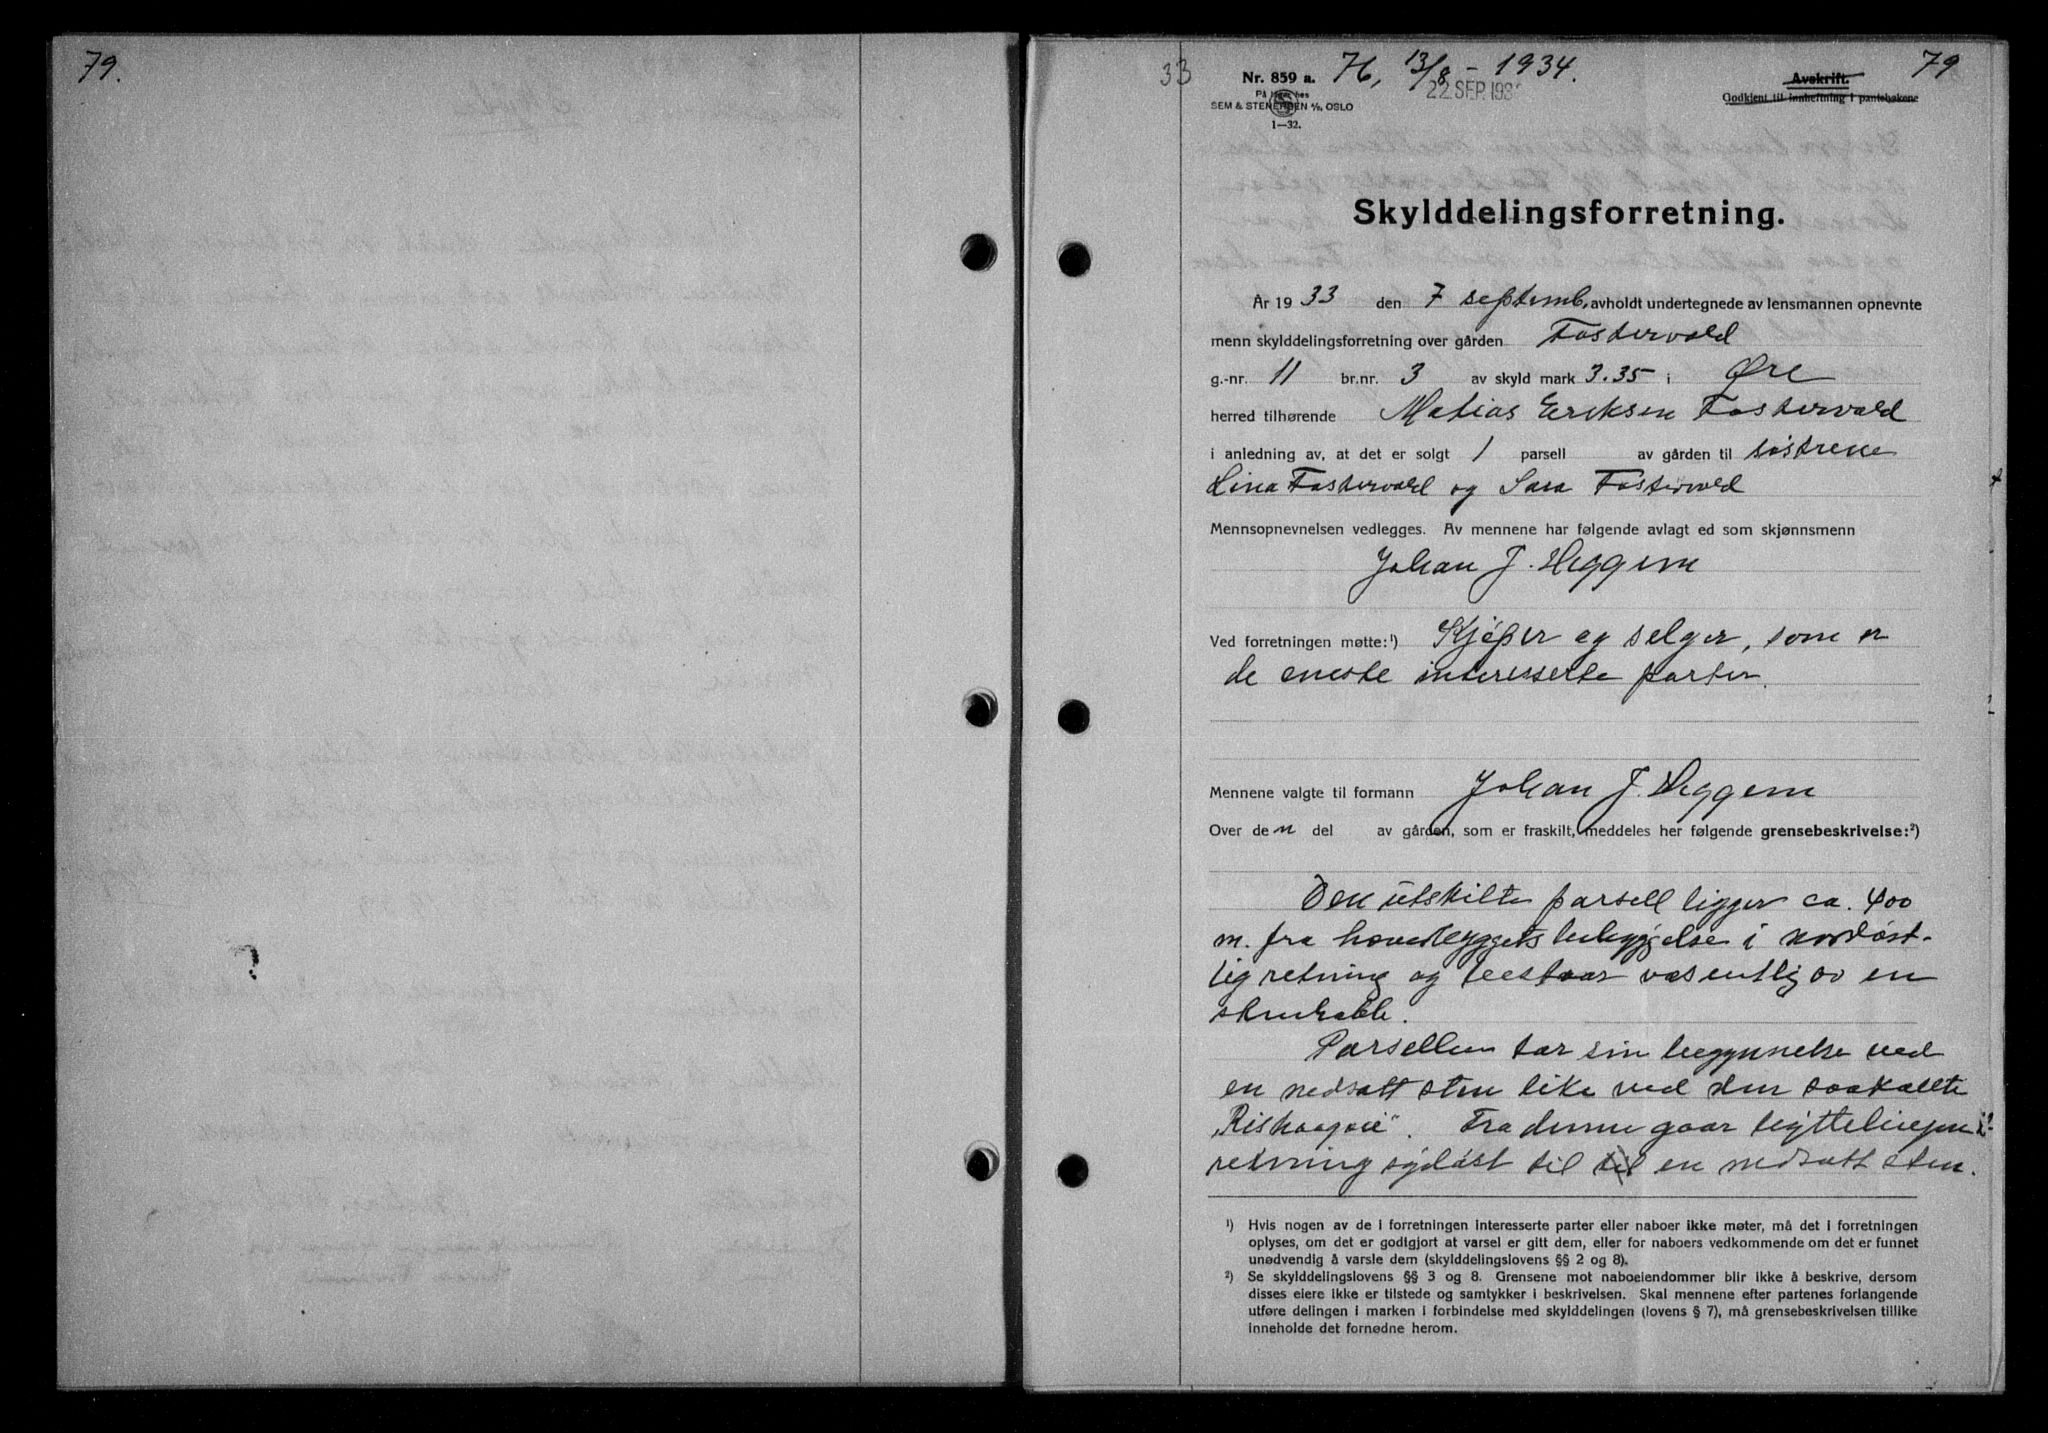 79.
33
Nr. 859 a. 76, 13/8 - 1934. Avskrift. 79
På lager hos 22 SEP. 193
SEM & STENERSEN A/S, OSLO Godkjent til innheftning i pantebøkene
1—32.
Skylddelingsforretning.
År 1933 den 7 septemb. avholdt undertegnede av lensmannen opnevnte
menn skylddelingsforretning over gården Fostervold
g.-nr. 11 br.nr. 3 av skyld mark 3.35 i Øre
herred tilhørende Matias Eriksen Fostervold
i anledning av, at det er solgt 1 parsell av gården til søstrene
Lina Fostervold og Sara Fostervold
Mennsopnevnelsen vedlegges. Av mennene har følgende avlagt ed som skjønnsmenn
Johan J. Heggem
Ved forretningen møtte:¹) Kjøper og selger, som er
de eneste interesserte parter.
Mennene valgte til formann Johan J. Heggem
Over den del av gården, som er fraskilt, meddeles her følgende grensebeskrivelse:²)
Den utskilte parsell ligger ca. 400
m. fra hovedbyggets bebyggelse i nordøst-
lig retning og bestaar vasentlig av en
skrubakke.
Parsellen tar sin begynnelse ved
en nedsatt sten like ved den saakallte
"Rishaagaie". Fra denne gaar byttelinjen i
retning sydøst til til en nedsatt sten.
¹) Hvis nogen av de i forretningen interesserte parter eller naboer ikke møter, må det i forretningen
oplyses, om det er godtgjort at varsel er gitt dem, eller for naboers vedkommende om det er funnet
unødvendig å varsle dem (skylddelingslovens §§ 2 og 8).
²) Se skylddelingslovens §§ 3 og 8. Grensene mot naboeiendommer blir ikke å beskrive, dersom
disses eiere ikke er tilstede og samtykker i beskrivelsen. Skal mennene efter partenes forlangende
utføre delingen i marken i forbindelse med skylddelingen (lovens § 7), må grensebeskrivelsen tillike
inneholde det fornødne herom.